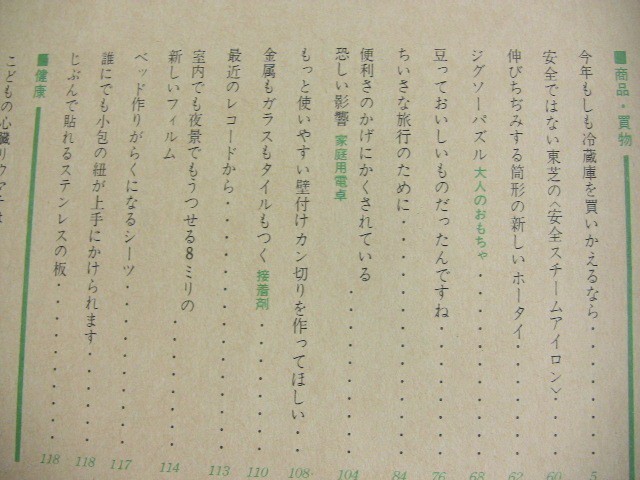 ■商品・買物
今年もしも冷蔵庫を買いかえるなら・・・・・・・5
安全ではない東芝の〈安全スチームアイロン〉・・・60
伸びちぢみする筒形の新しいホータイ・・・・・・62
ジグソーパズル 大人のおもちゃ・・・・・・・・・68
豆っておいしいものだったんですね・・・・・・・76
ちいさな旅行のために・・・・・・・・・・・・・84
便利さのかげにかくされている
恐しい影響 家庭用電卓・・・・・・・・・・・・104
もっと使いやすい壁付けカン切りを作ってほしい・・108
金属もガラスもタイルもつく 接着剤・・・・・・・110
最近のレコードから・・・・・・・・・・・・・・113
室内でも夜景でもうつせる8ミリの
新しいフィルム・・・・・・・・・・・・・・・・114
ベッド作りがらくになるシーツ・・・・・・・・・117
誰にでも小包の紐が上手にかけられます・・・・・・118
じぶんで貼れるステンレスの板・・・・・・・・・118
■健康
こどもの心臓リウマチは